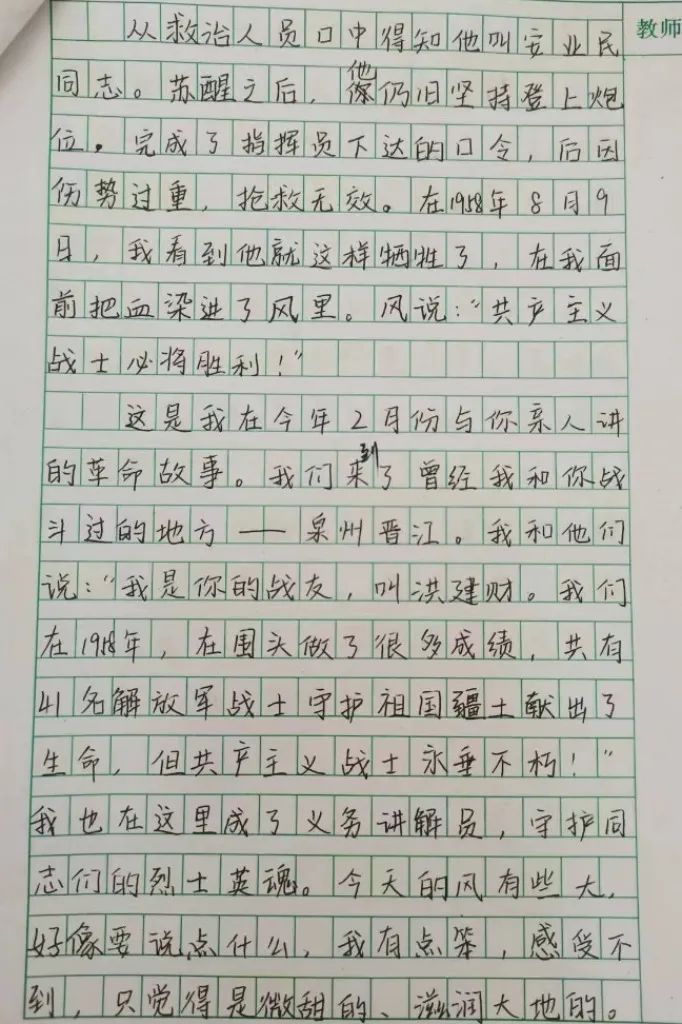 教师
从救治人员口中得知他叫安业民
同志。苏醒之后,他仍旧坚持登上炮
位。完成了指挥员下达的口令,后因
伤势过重,抢救无效。在1958年8月9
日,我看到他就这样牺牲了,在我面
前把血染进了风里。风说:“共产主义
战士必将胜利!”
这是我在今年2月份与你亲人讲
的革命故事。我们来到了曾经我和你战
斗过的地方——泉州晋江。我和他们
说:“我是你的战友,叫洪建财。我们
在1958年,在围头做了很多成绩,共有
41名解放军战士守护祖国疆土献出了
生命,但共产主义战士永垂不朽!”
我也在这里成了义务讲解员,守护同
志们的烈士英魂。今天的风有些大,
好像要说点什么,我有点笨,感受不
到,只觉得是微甜的、滋润大地的。